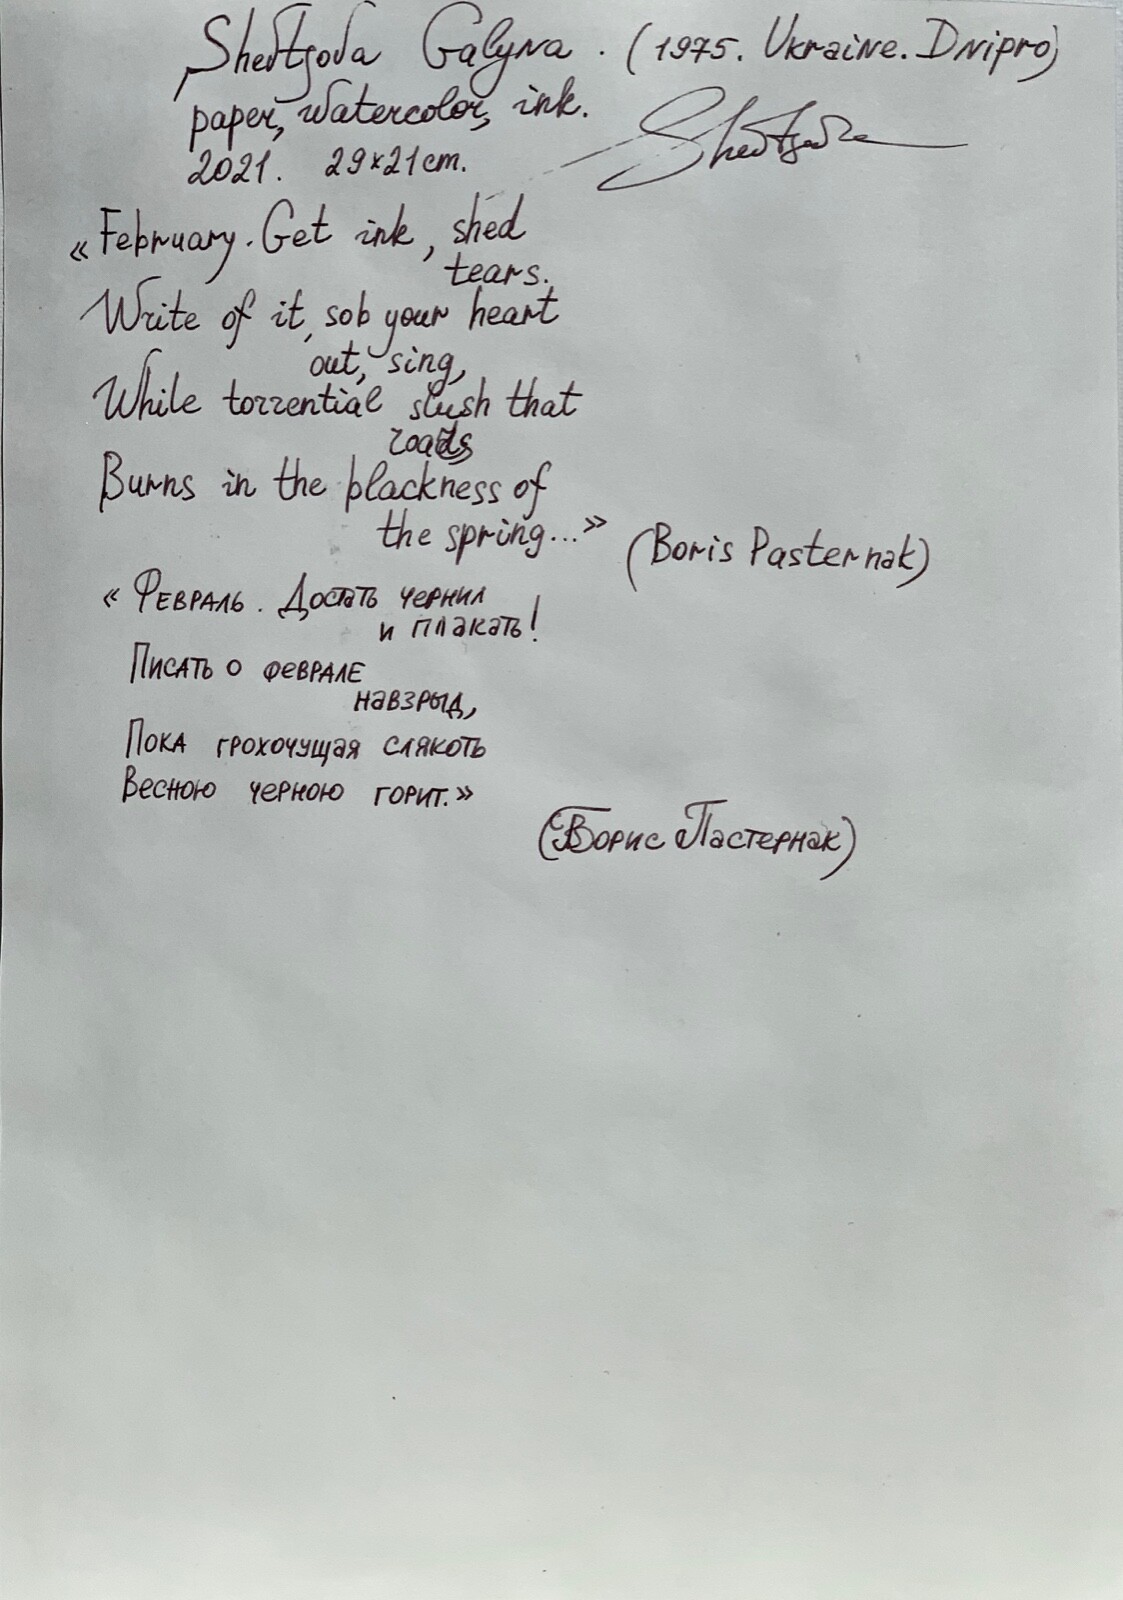 Shevtsova Galyna. (1975. Ukraine. Dnipro)
paper, watercolor, ink.
2021. 29x21cm.
Shevtsova
«February. Get ink, shed
tears.
Write of it, sob your heart
out, sing,
While torrential slush that
roads
Burns in the blackness of
the spring...»
(Boris Pasternak)
«Февраль. Достать чернил
и плакать!
Писать о феврале
навзрыд,
Пока грохочущая слякоть
Весною черною горит.»
(Борис Пастернак)